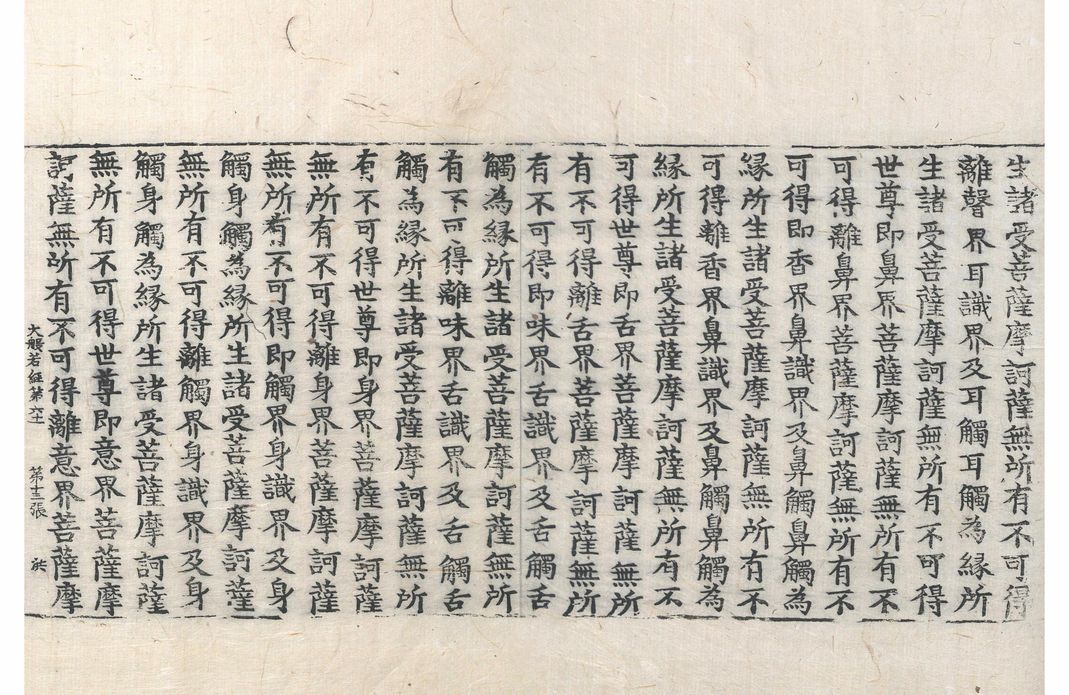 生諸受菩薩摩訶薩無所有不可得
離聲界耳識界及耳觸耳觸為緣所
生諸受菩薩摩訶薩無所有不可得
世尊即鼻界菩薩摩訶薩無所有不
可得離鼻界菩薩摩訶薩無所有不
可得即香界鼻識界及鼻觸鼻觸為
緣所生諸受菩薩摩訶薩無所有不
可得離香界鼻識界及鼻觸鼻觸為
緣所生諸受菩薩摩訶薩無所有不
可得世尊即舌界菩薩摩訶薩無所
有不可得離舌界菩薩摩訶薩無所
有不可得即味界舌識界及舌觸舌
觸為緣所生諸受菩薩摩訶薩無所
有不可得離味界舌識界及舌觸舌
觸為緣所生諸受菩薩摩訶薩無所
有不可得世尊即身界菩薩摩訶薩
無所有不可得離身界菩薩摩訶薩
無所有不可得即觸界身識界及身
觸身觸為緣所生諸受菩薩摩訶薩
無所有不可得離觸界身識界及身
觸身觸為緣所生諸受菩薩摩訶薩
無所有不可得世尊即意界菩薩摩
訶薩無所有不可得離意界菩薩摩
大般若經第六十一 第十三張